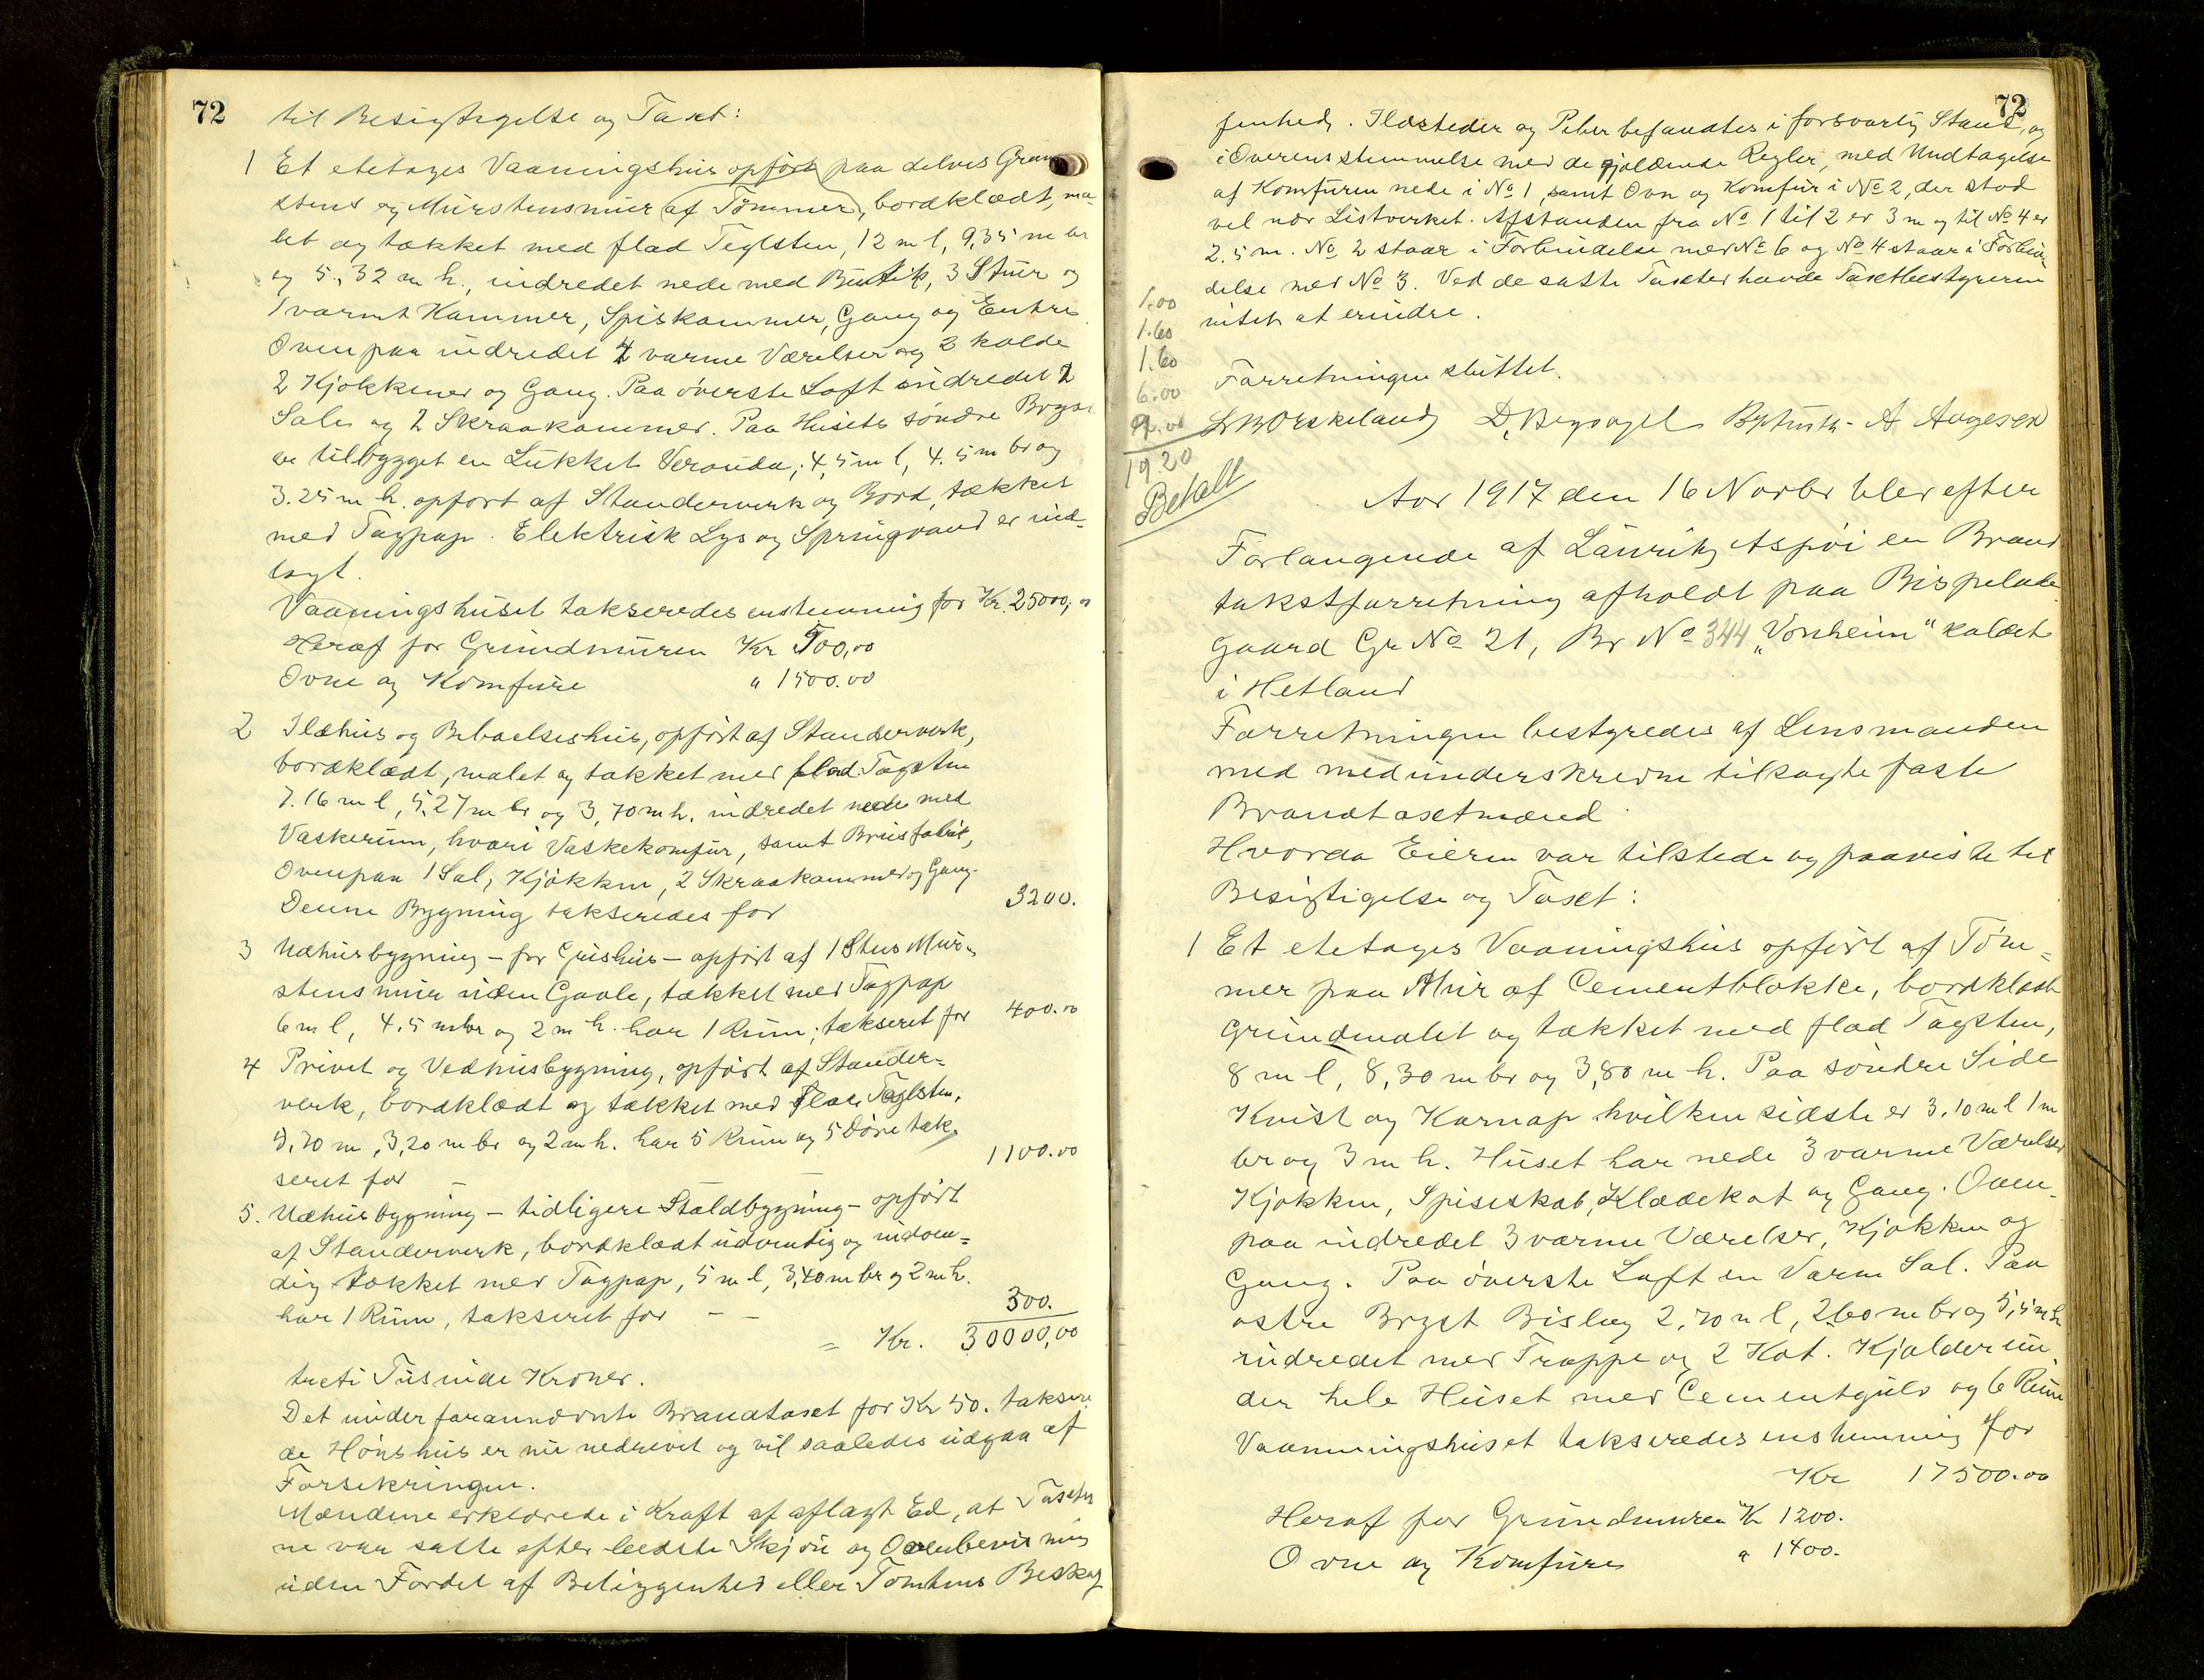 72
til Besigtigelse og Taxt:
1 Et etetages Vaaningshus opført paa delvis Graa
stens og Murstensmur (af Tømmer), bordklædt, ma-
let og tækket med flad Teglsten, 12 m l, 9,35 m br
og 5,32 m h., indredet nede med Butik, 3 Stuer og
1 varmt Kammer, Spiskammer, Gang og Entre.
Ovenpaa indredet 4 varme Værelser og 2 kolde
2 Kjøkkener og Gang. Paa øverste Loft indredet 2
Sale og 2 Skraakammer. Paa Husets søndre
er tilbygget en Lukket Veranda, 4,5 m l, 4.5 m br og
3.25 m h. opført af Standerverk og Bord, tækket
med Tagpap. Elektrisk Lys og Springvand er ind-
lagt.
Vaaningshuset takseredes enstemmig for Kr. 25000,00
Heraf for Grundmuren Kr 500,00
Ovne og Komfure " 1500.00
2 Ildhus og Beboelseshus, opført af Standerverk,
bordklædt, malet og tækket med flad Tagsten
7.16 m l, 5,27 m br og 3,70 m h. indredet nede med
Vaskerum, hvori Vaskekomfur, samt Brusfabrik,
Ovenpaa 1 Sal, Kjøkken, 2 Skraakammer og Gang.
Denne Bygning takseredes for 3200.
3 Udhusbygning – for Grishus – opført af 1 Stens Mur-
stensmur uden Gavle, tækket med Tagpap
6 m l, 4.5 m br og 2 m h. har 1 Rum; takseret for 400.00
4 Privet og Vedhusbygning, opført af Stander-
verk, bordklædt og tækket med flad Teglsten,
5,70 m, 3,20 m br og 2 m h. har 5 Rum og 5 Døre tak-
seret for – 1100.00
5. Udhusbygning – tidligere Staldbygning – opført
af Standerverk, bordklædt udvendig og indven-
dig tækket med Tagpap, 5 m l, 3,40 m br og 2 m h.
har 1 Rum, takseret for – – 300.
= Kr. 30000,00
treti Tusinde Kroner.
Det under forannævnte Brandtaxt for Kr 50. taksere
de Hønshus er nu nedrevet og vil saaledes udgaa af
Forsikringen.
Mændene erklærede i Kraft af aflagt Ed, at Taxter
ne var satte efter bedste Skjøn og Overbevisning
uden Fordel af Beliggenhed eller Tomtens Beskaf
72
fenhed. Ildsteder og Piber befandtes i forsvarlig Stand, og
i Overensstemmelse med de gjældende Regler, med Undtagelse
af Komfuren nede i No 1, samt Ovn og Komfur i No 2, der stod
vel nær Listverket. Afstanden fra No 1 til 2 er 3 m og til No 4 er
2.5 m. No 2 staar i Forbindelse med No 6 og No 4 staar i Forbin
delse med No 3. Ved de satte Taxter havde Taxtbestyreren
intet at erindre.
1.00
1.60
1.60
6.00
9.00
19.20
Betalt
Forretningen sluttet.
A Aagesen
Aar 1917 den 16 Novbr blev efter
Forlangende af Lauritz Aspøi en Brand
takstforretning afholdt paa Bispelade
gaard Gr No 21, Br No 344 „Vonheim" kaldet
i Hetland
Forretningen bestyredes af Lensmanden
med medunderskrevne tilsagte faste
Brandtaxtmænd.
Hvorda Eieren var tilstede og paaviste til
Besigtigelse og Taxt:
1 Et etetages Vaaningshus opført af Tøm-
mer paa Mur af Cementblokke, bordklædt
grundmalet og tækket med flad Tagsten,
8 m l, 8,30 m br og 3,80 m h. Paa søndre Side
Kvist og Karnap hvilken sidste er 3,10 m l 1 m
br og 3 m h. Huset har nede 3 varme Værelser
Kjøkken, Spiseskab, Klædekot og Gang. Oven-
paa indredet 3 varme Værelser, Kjøkken og
Gang. Paa øverste Loft en Varm Sal. Paa
østre Bryst Bislag 2,70 m l, 2,60 m br og 5,5 m h
indredet med Trappe og 2 Kot. Kjælder un
der hele Huset med Cementgulv og 6 Rum
Vaanningshuset takseredes enstemmig for
Kr 17500.00
Heraf for Grundmuren Kr 1200.
Ovne og Komfure " 1400.